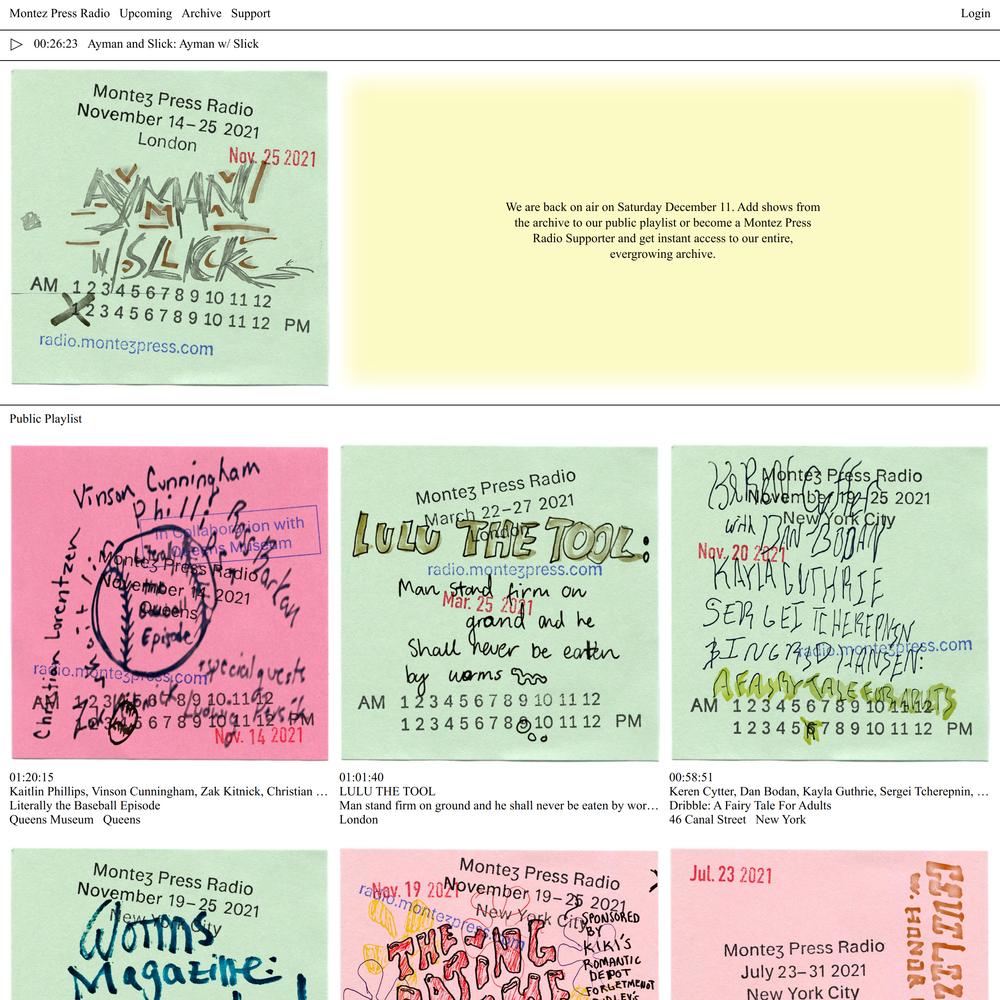 Montez Press Radio Upcoming Archive Support Login
00:26:23 Ayman and Slick: Ayman w/ Slick
Montez Press Radio
November 14–25 2021
London
Nov. 25 2021
AYMAN
w/SLICK
AM 1 2 3 4 5 6 7 8 9 10 11 12
1 2 3 4 5 6 7 8 9 10 11 12 PM
radio.montezpress.com
We are back on air on Saturday December 11. Add shows from
the archive to our public playlist or become a Montez Press
Radio Supporter and get instant access to our entire,
evergrowing archive.
Public Playlist
Vinson Cunningham
Philli
In Collaboration with
Queens Museum
Christian Lorentzen
Montez Press Radio
November 14, 2021
Queens
Baseball
Episode
radio.montezpress.com
special guests
AM 1 2 3 4 5 6 7 8 9 10 11 12
1 2 3 4 5 6 7 8 9 10 11 12 PM
Nov. 14 2021
Montez Press Radio
March 22–27 2021
London
LULU THE TOOL:
radio.montezpress.com
Man stand firm on
Mar. 25 2021
grand and he
Shall never be eaten
by worms
AM 1 2 3 4 5 6 7 8 9 10 11 12
1 2 3 4 5 6 7 8 9 10 11 12 PM
KEREN CYTTER
Montez Press Radio
November 19–25 2021
New York City
with DAN BODAN
Nov. 20 2021
KAYLA GUTHRIE
SERGEI TCHEREPNIN
radio.montezpress.com
A FAIRY TALE FOR ADULTS
AM 1 2 3 4 5 6 7 8 9 10 11 12
1 2 3 4 5 6 7 8 9 10 11 12 PM
01:20:15
Kaitlin Phillips, Vinson Cunningham, Zak Kitnick, Christian …
Literally the Baseball Episode
Queens Museum Queens
01:01:40
LULU THE TOOL
Man stand firm on ground and he shall never be eaten by wor…
London
00:58:51
Keren Cytter, Dan Bodan, Kayla Guthrie, Sergei Tcherepnin, …
Dribble: A Fairy Tale For Adults
46 Canal Street New York
Montez Press Radio
November 19–25 2021
New York City
Worms
Magazine:
Montez Press Radio
Nov. 19 2021
November 19–25 2021
radio.montezpress.com
New York City
THE
SPONSORED
BY
KIKI'S
ROMANTIC
DEPOT
FORGETMENOT
Jul. 23 2021
Montez Press Radio
July 23–31 2021
New York City